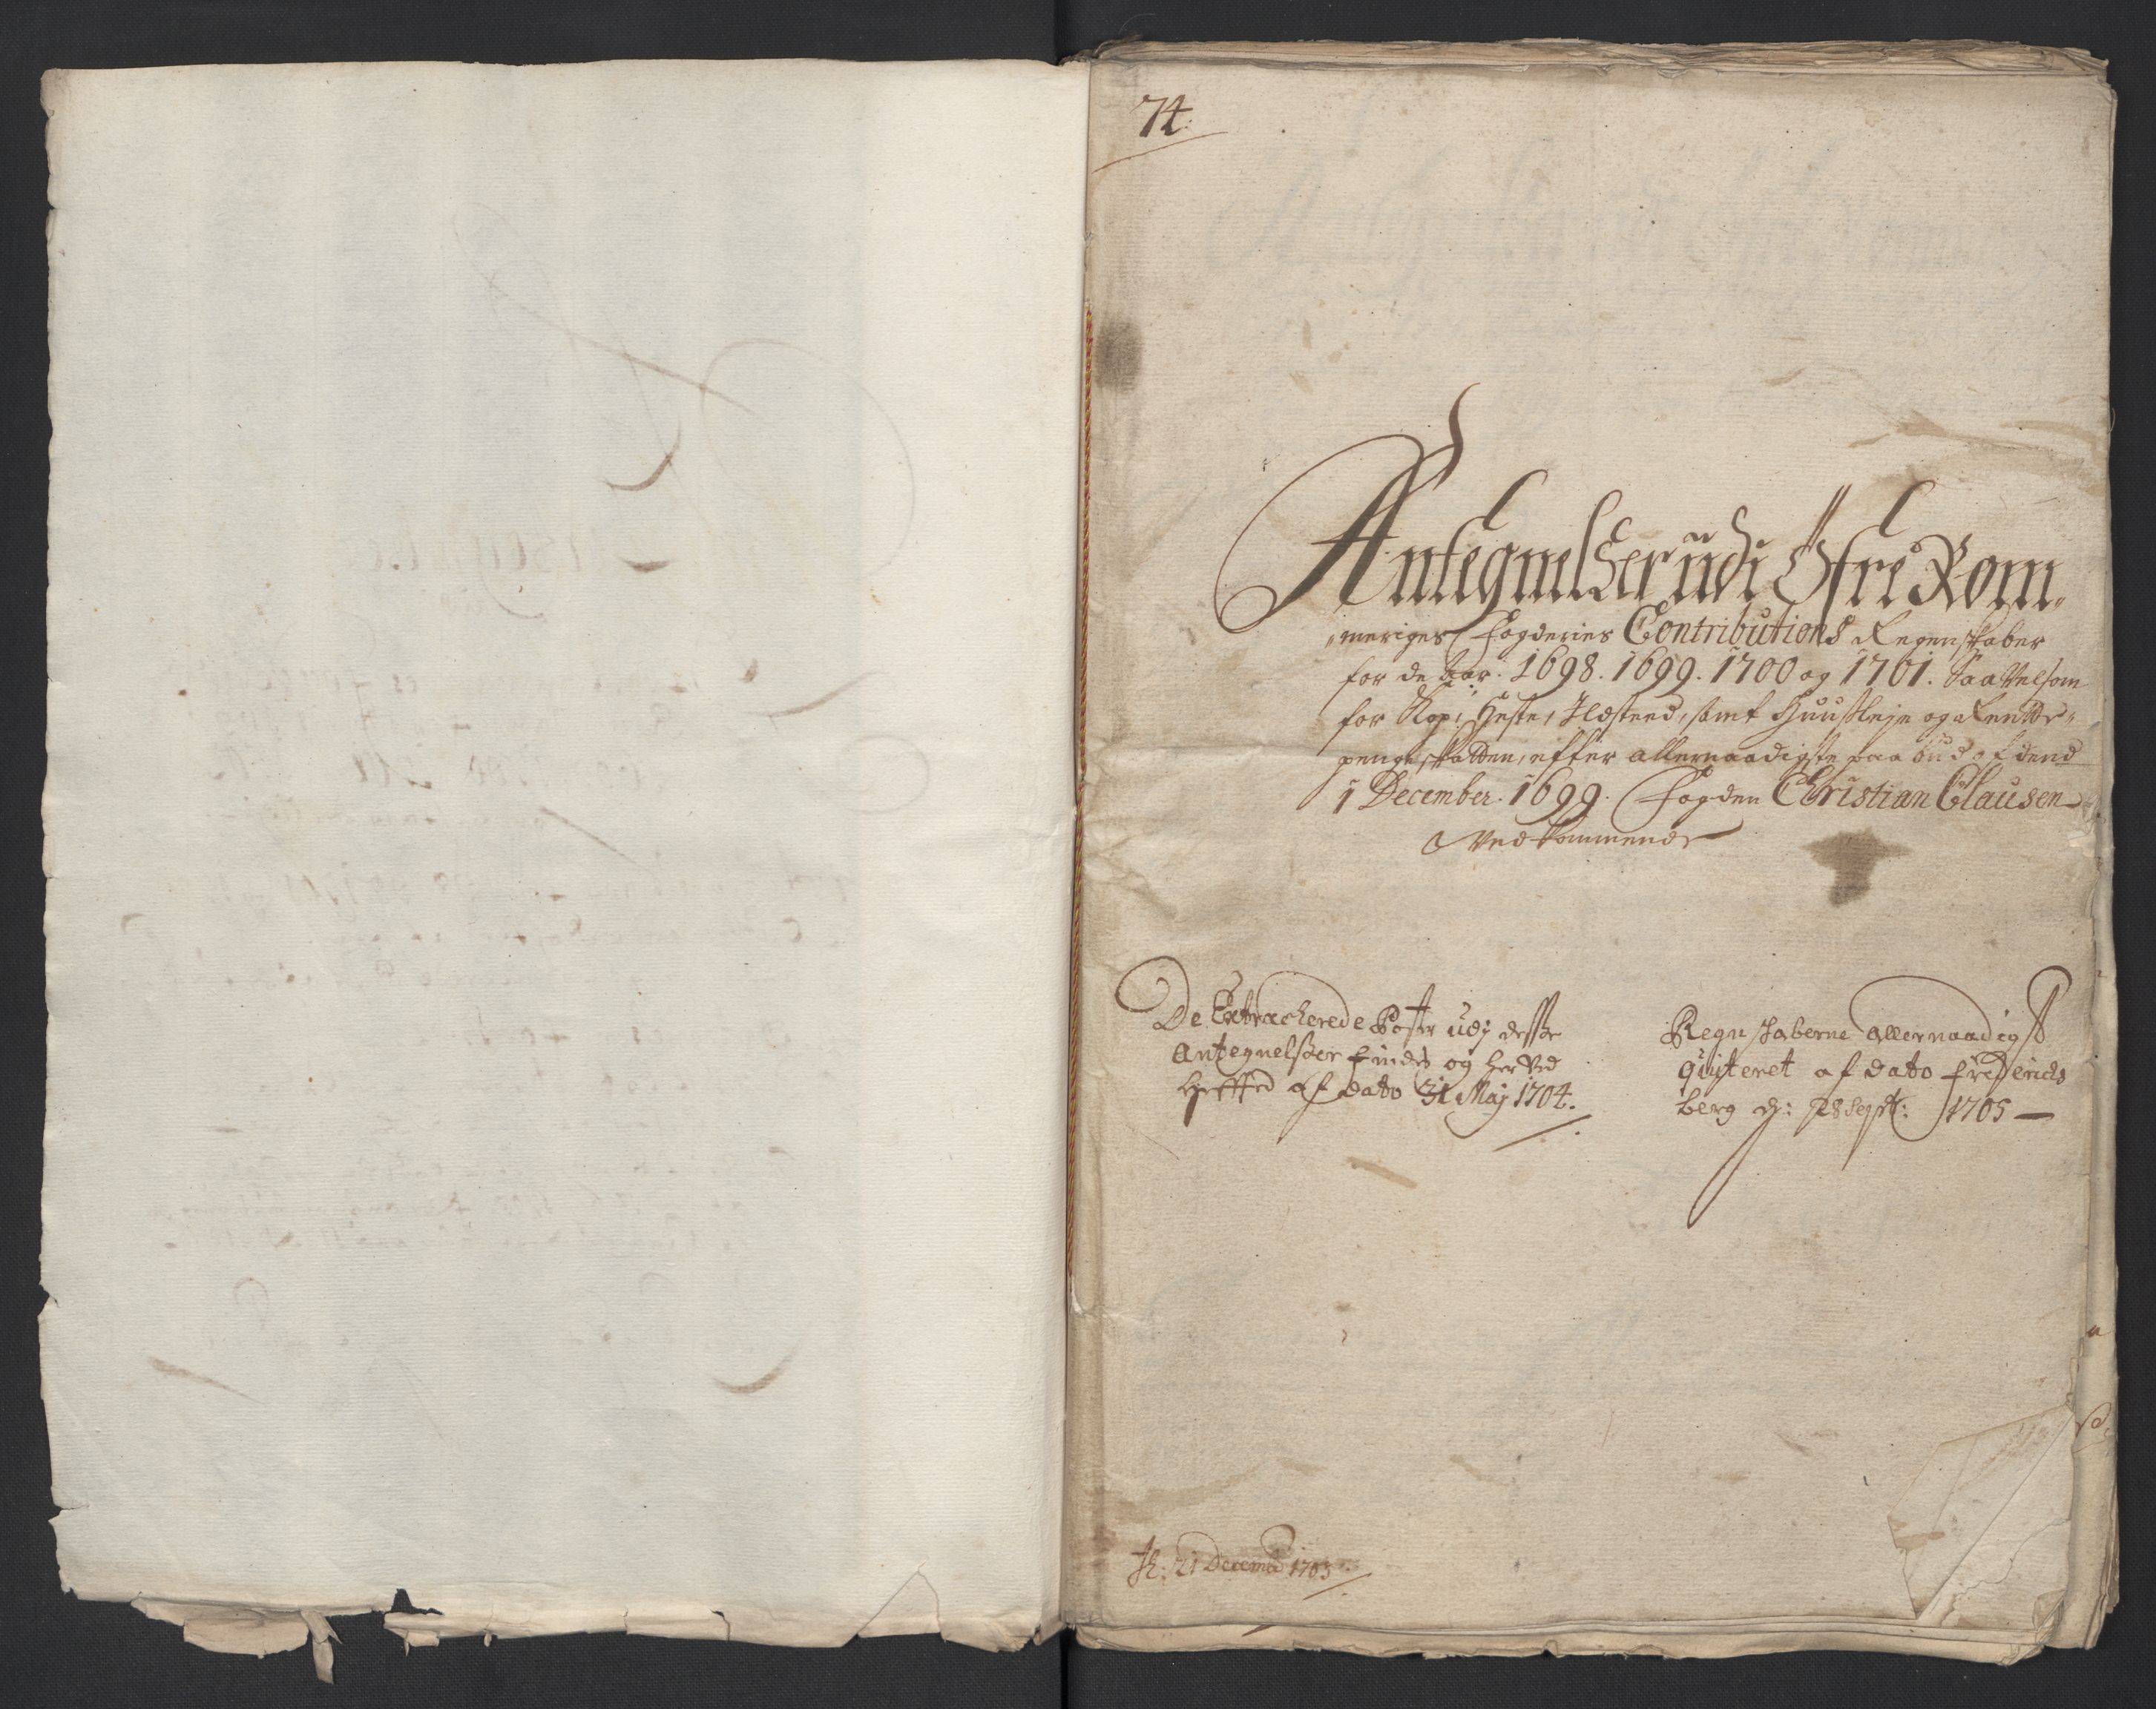 74.
Antegnelsser udi Öfre Rom-
meriges Fogderies Contributions Regenskaber
for de Aar. 1698. 1699. 1700 og 1701. Saavelsom
for Kop, Heste, Ildsteed, samt Huusleje og Rentte-
penge skatten, efter allernaadigste paabud af dend
1 December. 1699. Fogden Christian Clausen
Vedkommende
De Extracherede Poster udj desse
Antegnelsser findes og her Ved
Heffted af dato 31 Maj 1704.
Regnskaberne allernaadigst
Qviteret af dato Friderichs
berg d: 28 Sept: 1705
21 Decemb 1703